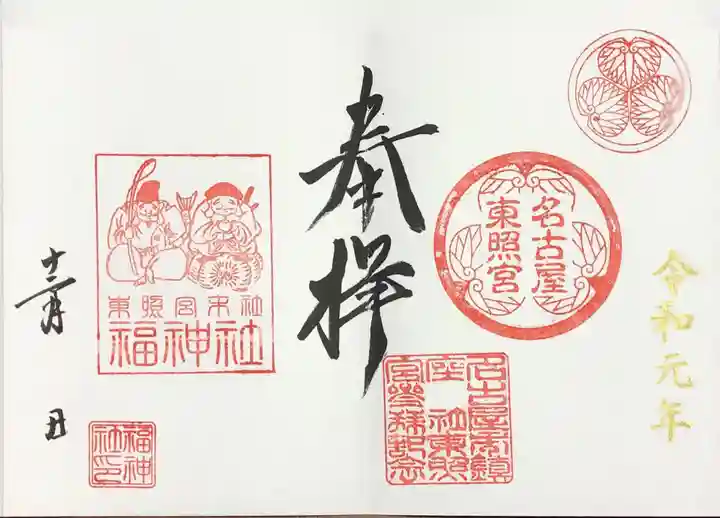 令和元年
名古屋
東照宮
名古屋市鎮
座 社東照
宮参拝記念
奉拝
東照宮末社
福神社
十二月 日
福神
社印